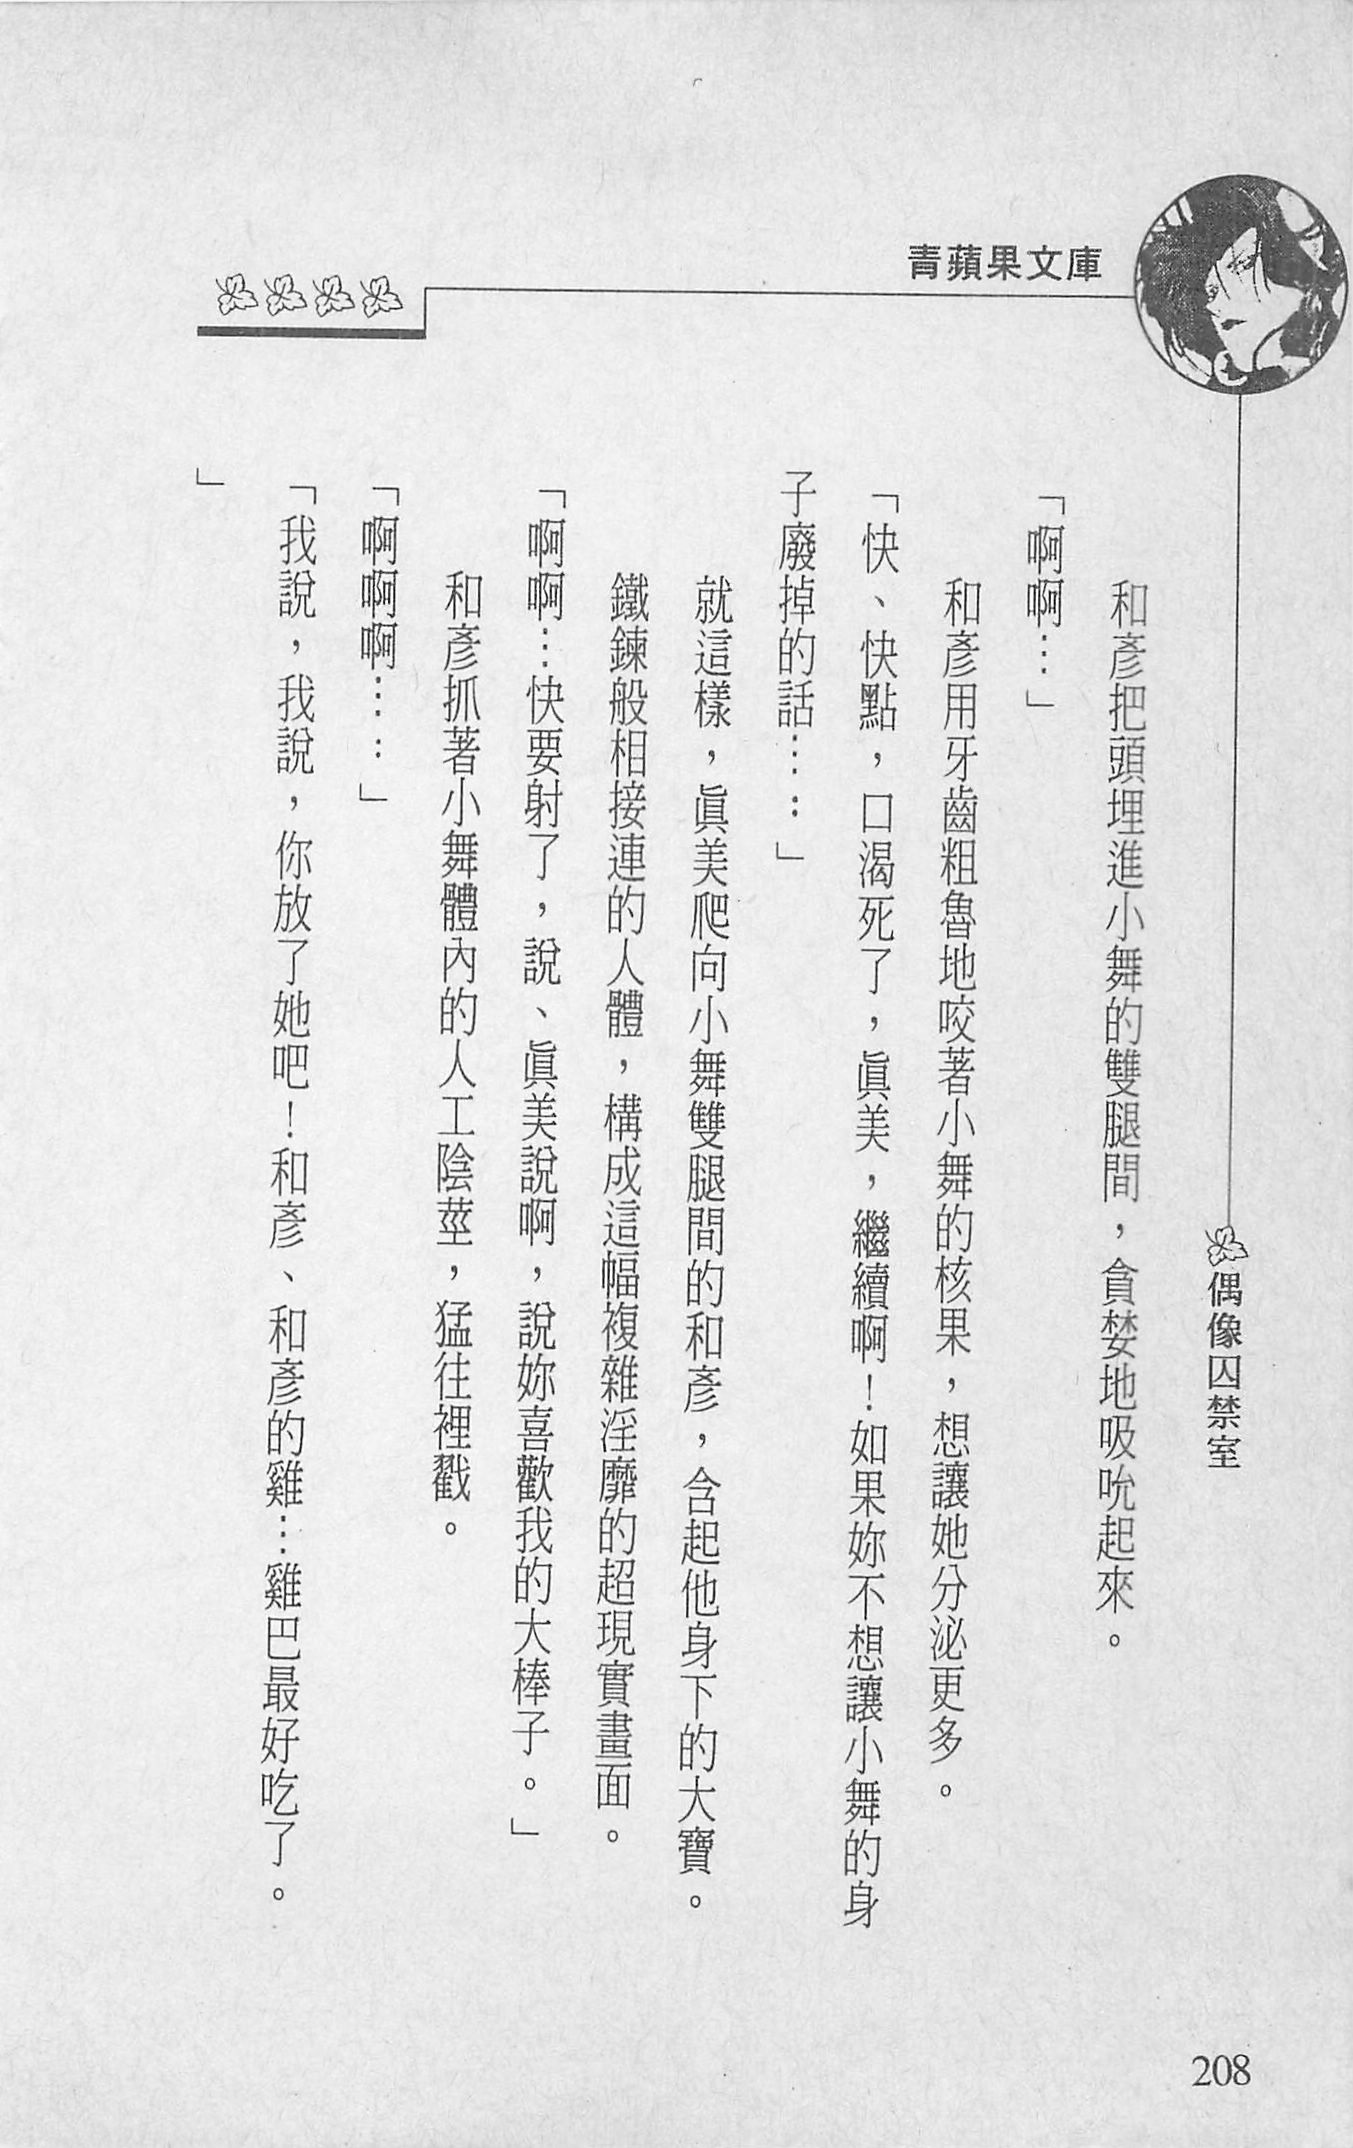 青蘋果文庫
偶像囚禁室
和彥把頭埋進小舞的雙腿間，貪婪地吸吮起來。
「啊啊…」
和彥用牙齒粗魯地咬著小舞的核果，想讓她分泌更多。
「快、快點，口渴死了，眞美，繼續啊！如果妳不想讓小舞的身
子廢掉的話……」
就這樣，眞美爬向小舞雙腿間的和彥，含起他身下的大寶。
鐵鍊般相接連的人體，構成這幅複雜淫靡的超現實畫面。
「啊啊…快要射了，說、眞美說啊，說妳喜歡我的大棒子。」
和彥抓著小舞體內的人工陰莖，猛往裡戳。
「啊啊啊……」
「我說，我說，你放了她吧！和彥、和彥的雞…雞巴最好吃了。
」
208